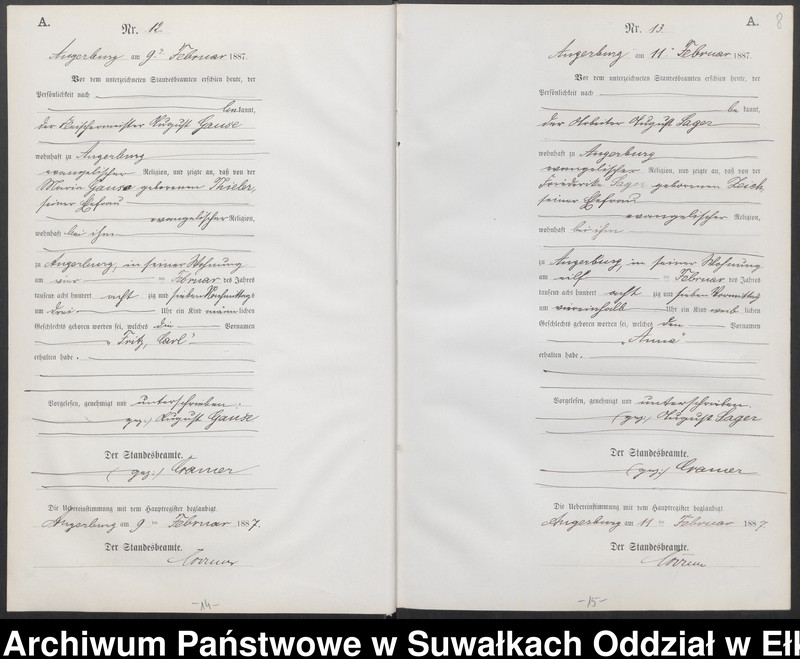 A.
Nr. 12.
Angerburg am 9ᵗ Februar 1887.
Vor dem unterzeichneten Standesbeamten erschien heute, der
Persönlichkeit nach
bekannt,
der August Gause
wohnhaft zu Angerburg
evangelischer Religion, und zeigte an, daß von der
Maria Gause geborenen Thieler,
seiner Ehefrau
evangelischer Religion,
wohnhaft bei ihm
zu Angerburg, in seiner Wohnung
am vier ten Februar des Jahres
tausend acht hundert acht zig und sieben Nachmittags
um drei Uhr ein Kind männlichen
Geschlechts geboren worden sei, welches die Vornamen
„Fritz, Carl“
erhalten habe.
Vorgelesen, genehmigt und unterschrieben.
gez.) August Gause
Der Standesbeamte.
(gez.) Cramer
Die Uebereinstimmung mit dem Hauptregister beglaubigt.
Angerburg am 9 ten Februar 1887.
Der Standesbeamte.
-14-
A.
8
Nr. 13.
Angerburg am 11ᵗ Februar 1887.
Vor dem unterzeichneten Standesbeamten erschien heute, der
Persönlichkeit nach
be kannt,
der Arbeiter August Sager
wohnhaft zu Angerburg
evangelischer Religion, und zeigte an, daß von der
Friederike Sager geborenen Zeich,
seiner Ehefrau
evangelischer Religion,
wohnhaft bei ihm
zu Angerburg, in seiner Wohnung
am elf ten Februar des Jahres
tausend acht hundert acht zig und sieben Vormittags
um viereinhalb Uhr ein Kind weib lichen
Geschlechts geboren worden sei, welches den Vornamen
„Anna“
erhalten habe.
Vorgelesen, genehmigt und unterschrieben.
(gez.) August Sager
Der Standesbeamte.
(gez.) Cramer
Die Uebereinstimmung mit dem Hauptregister beglaubigt.
Angerburg am 11 ten Februar 1887.
Der Standesbeamte.
-15-
Archiwum Państwowe w Suwałkach Oddział w Ełk